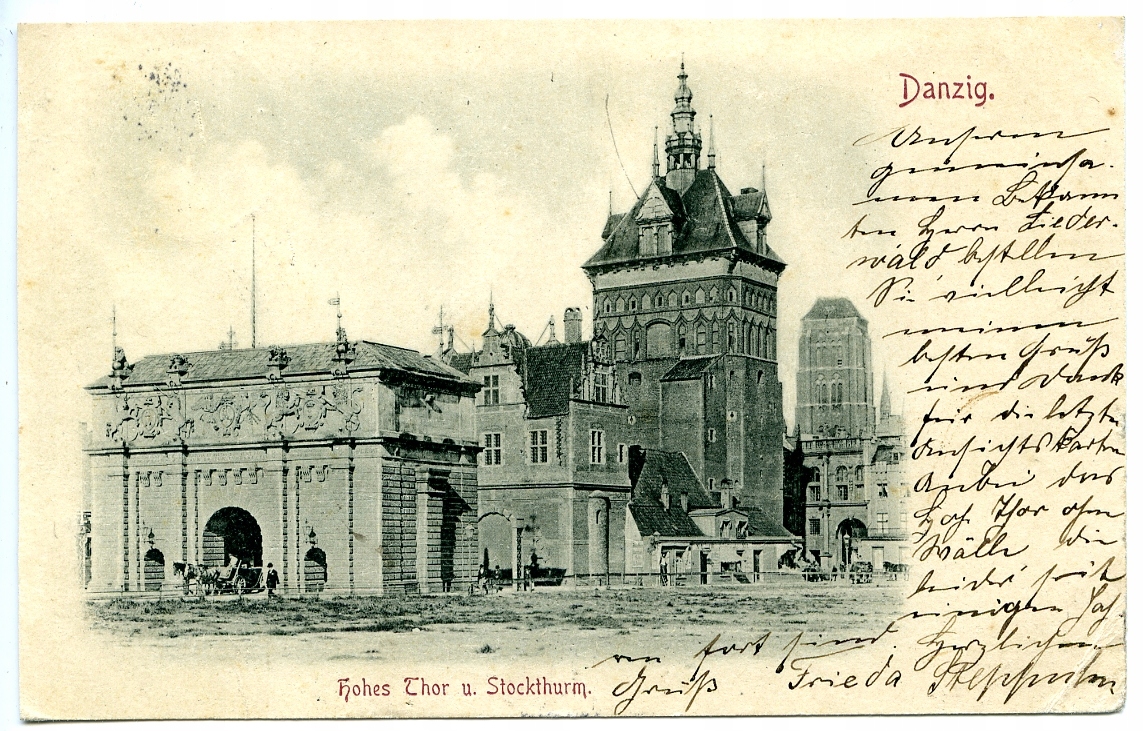 Danzig.
Unseren
gemeinsa-
men Bekann
ten Herrn Lieder-
wald bestellen
Sie vielleicht
meinen
besten Gruß
und Dank
für die letzten
Ansichtskarten
Anbei das
Hohe Thor ohne
Wälle die
leider seit
einigen Jah-
ren fort sind. Herzlichen
Gruß Frieda
Hohes Thor u. Stockthurm.